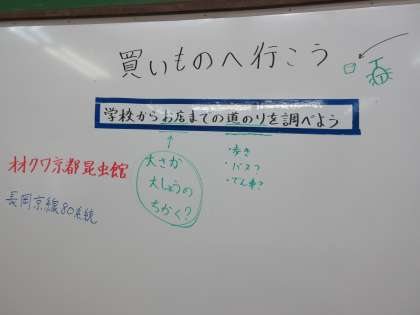 買いものへ行こう
学校からお店までの道のりを調べよう
・歩き
・バス?
・でん車?
大さか
大しょうの
ちかく?
オオクワ京都昆虫館
長岡京線80系統